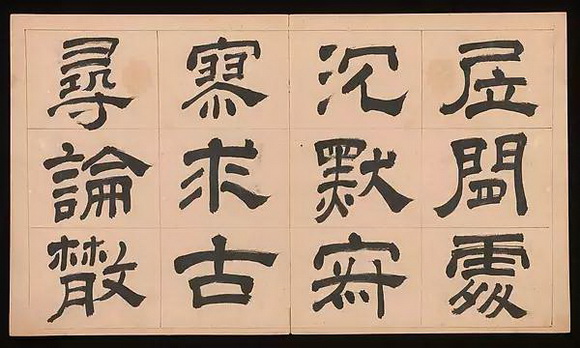 居閑處
沉默寂
寥求古
尋論散